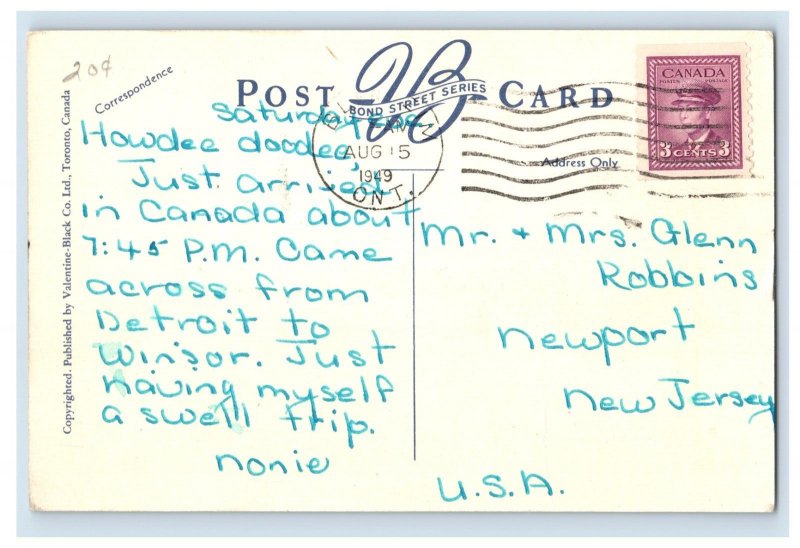 20¢
Correspondence
POST CARD
VB
BOND STREET SERIES
CANADA
POSTES POSTAGE
3 CENTS 3
AUG 15
1949
ONT.
Address Only
Saturday
Howdee doodee,
Just arrived
in Canada about
7:45 P.M. Came
across from
Detroit to
Winsor. Just
having myself
a swell trip.
nonie
Mr. + Mrs. Glenn
Robbins
Newport
New Jersey
U.S.A.
Copyrighted. Published by Valentine-Black Co. Ltd., Toronto, Canada